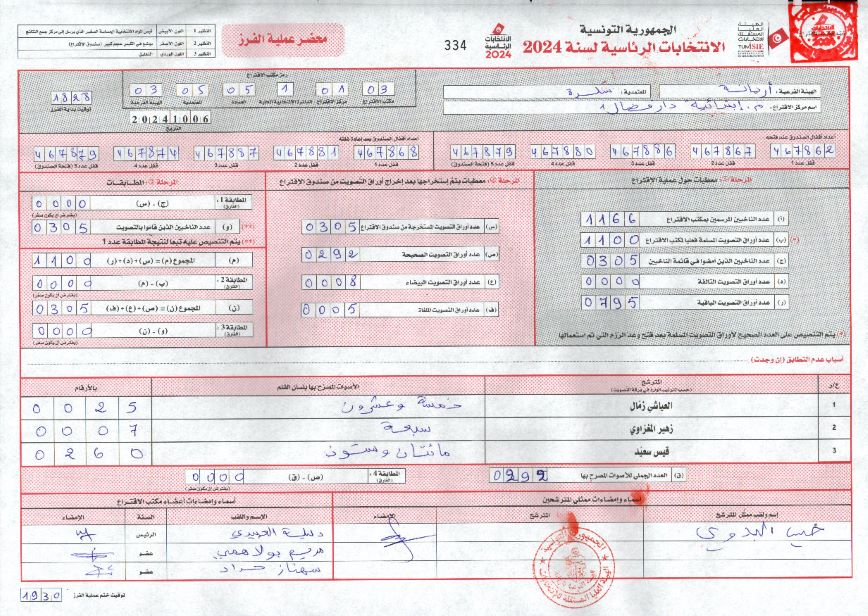 الجمهورية التونسية
الانتخابات الرئاسية لسنة 2024
الانتخابات الرئاسية 2024
334
محضر عملية الفرز
النظير 1 اللون الأبيض
النظير 2 اللون الأصفر
النظير 3 اللون الوردي التعليق
الهيئة الفرعية: أريانة المعتمدية: سكرة
اسم مركز الاقتراع: م. ابتدائية دار فضال 1
رمز مكتب الاقتراع
03 01 1 05 05 03
مكتب الاقتراع مركز الاقتراع الدائرة الانتخابية المحلية العمادة المعتمدية الهيئة الفرعية
1828
توقيت بداية الفرز
20241006
التاريخ
أعداد أقفال الصندوق عند فتحه
467862 467867 467886 467880 467879
قفل عدد 1 قفل عدد 2 قفل عدد 3 قفل عدد 4 قفل عدد 5 (فتحة الصندوق)
أعداد أقفال الصندوق بعد إعادة غلقه
467868 467881 467887 467874 467879
قفل عدد 1 قفل عدد 2 قفل عدد 3 قفل عدد 4 قفل عدد 5 (فتحة الصندوق)
معطيات حول عملية الاقتراع
(أ) عدد الناخبين المرسمين بمكتب الاقتراع 1166
(ب) عدد أوراق التصويت المسلمة فعليا لمكتب الاقتراع 1100
(ج) عدد الناخبين الذين أمضوا في قائمة الناخبين 0305
(د) عدد أوراق التصويت التالفة 0000
(ر) عدد أوراق التصويت الباقية 0795
(*) يتم التنصيص على العدد الصحيح لأوراق التصويت المسلمة بعد فتح وعد الرزم التي تم استعمالها
معطيات يتم استخراجها بعد إخراج أوراق التصويت من صندوق الاقتراع
(س) عدد أوراق التصويت المستخرجة من صندوق الاقتراع 0305
(ص) عدد أوراق التصويت الصحيحة 0292
(ع) عدد أوراق التصويت البيضاء 0008
(ف) عدد أوراق التصويت الملغاة 0005
المطابقات
المطابقة 1 (الفارق) (ج) - (س) 0000
(و) عدد الناخبين الذين قاموا بالتصويت 0305
(**) يتم التنصيص عليه تبعا لنتيجة المطابقة عدد 1
(م) المجموع (م) = (س)+(د)+(ر) 1100
المطابقة 2 (الفارق) (ب) - (م) 0000
(ن) المجموع (ن) = (ص)+(ع)+(ف) 0305
المطابقة 3 (الفارق) (و) - (ن) 0000
أسباب عدم التطابق (إن وجدت)
ع/ر المترشح الأصوات المصرح بها بلسان القلم بالأرقام
1 العياشي زمال خمسة وعشرون 0025
2 زهير المغزاوي سبعة 0007
3 قيس سعيد مائتان وستون 0260
(ق) العدد الجملي للأصوات المصرح بها 0292
المطابقة 4 (الفارق) (ص) - (ق) 0000
أسماء وإمضاءات ممثلي المترشحين
اسم ولقب ممثل المترشح المترشح الإمضاء
أسماء وإمضاءات أعضاء مكتب الاقتراع
الاسم واللقب الصفة الإمضاء
الرئيس
عضو
عضو
توقيت ختم عملية الفرز 1930